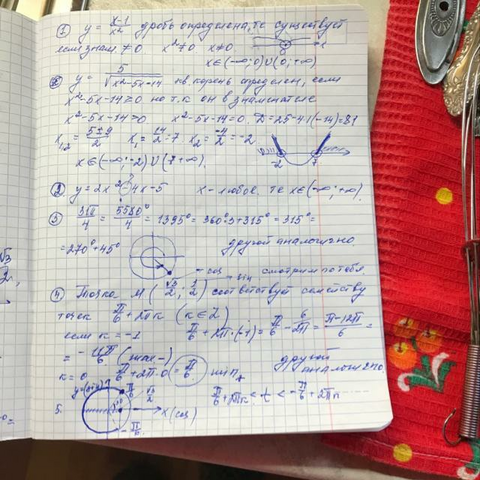 ① y = x-1/x² дробь определена, т.е. существует
если знам. ≠ 0 x² ≠ 0 x ≠ 0
x ∈ (-∞; 0) ∪ (0; +∞)
y = 5/√(x²-5x-14) кв. корень определен, если
x²-5x-14 ≥ 0 но т.к он в знаменателе
x²-5x-14 > 0 x²-5x-14 = 0. D = 25-4·1·(-14) = 81
x₁,₂ = 5±9/2 x₁ = 14/2 = 7 x₂ = -4/2 = -2
-2 7
x ∈ (-∞; -2) ∪ (7; +∞).
② y = 2x²-4x-5 x - любое, т.е x ∈ (-∞; +∞)
③ 31π/4 = 5580°/4 = 1395° = 360°·3+315° = 315° =
= 270°+45° другой аналогично
cos sin смотрим по табл
④ Точка M (√3/2; 1/2) соответствует семейству
точек π/6 + 2πk (k ∈ Z)
если k = -1 π/6 + 2π·(-1) = π/6 - 2π = π-12π/6 =
= -11π/6 (max -)
k = 0 π/6 + 2π·0 = π/6 min + другой аналогично
5. π/6 √3/2 x (cos) π/6 + 2πk < t < -π/6 + 2πn
-π/6